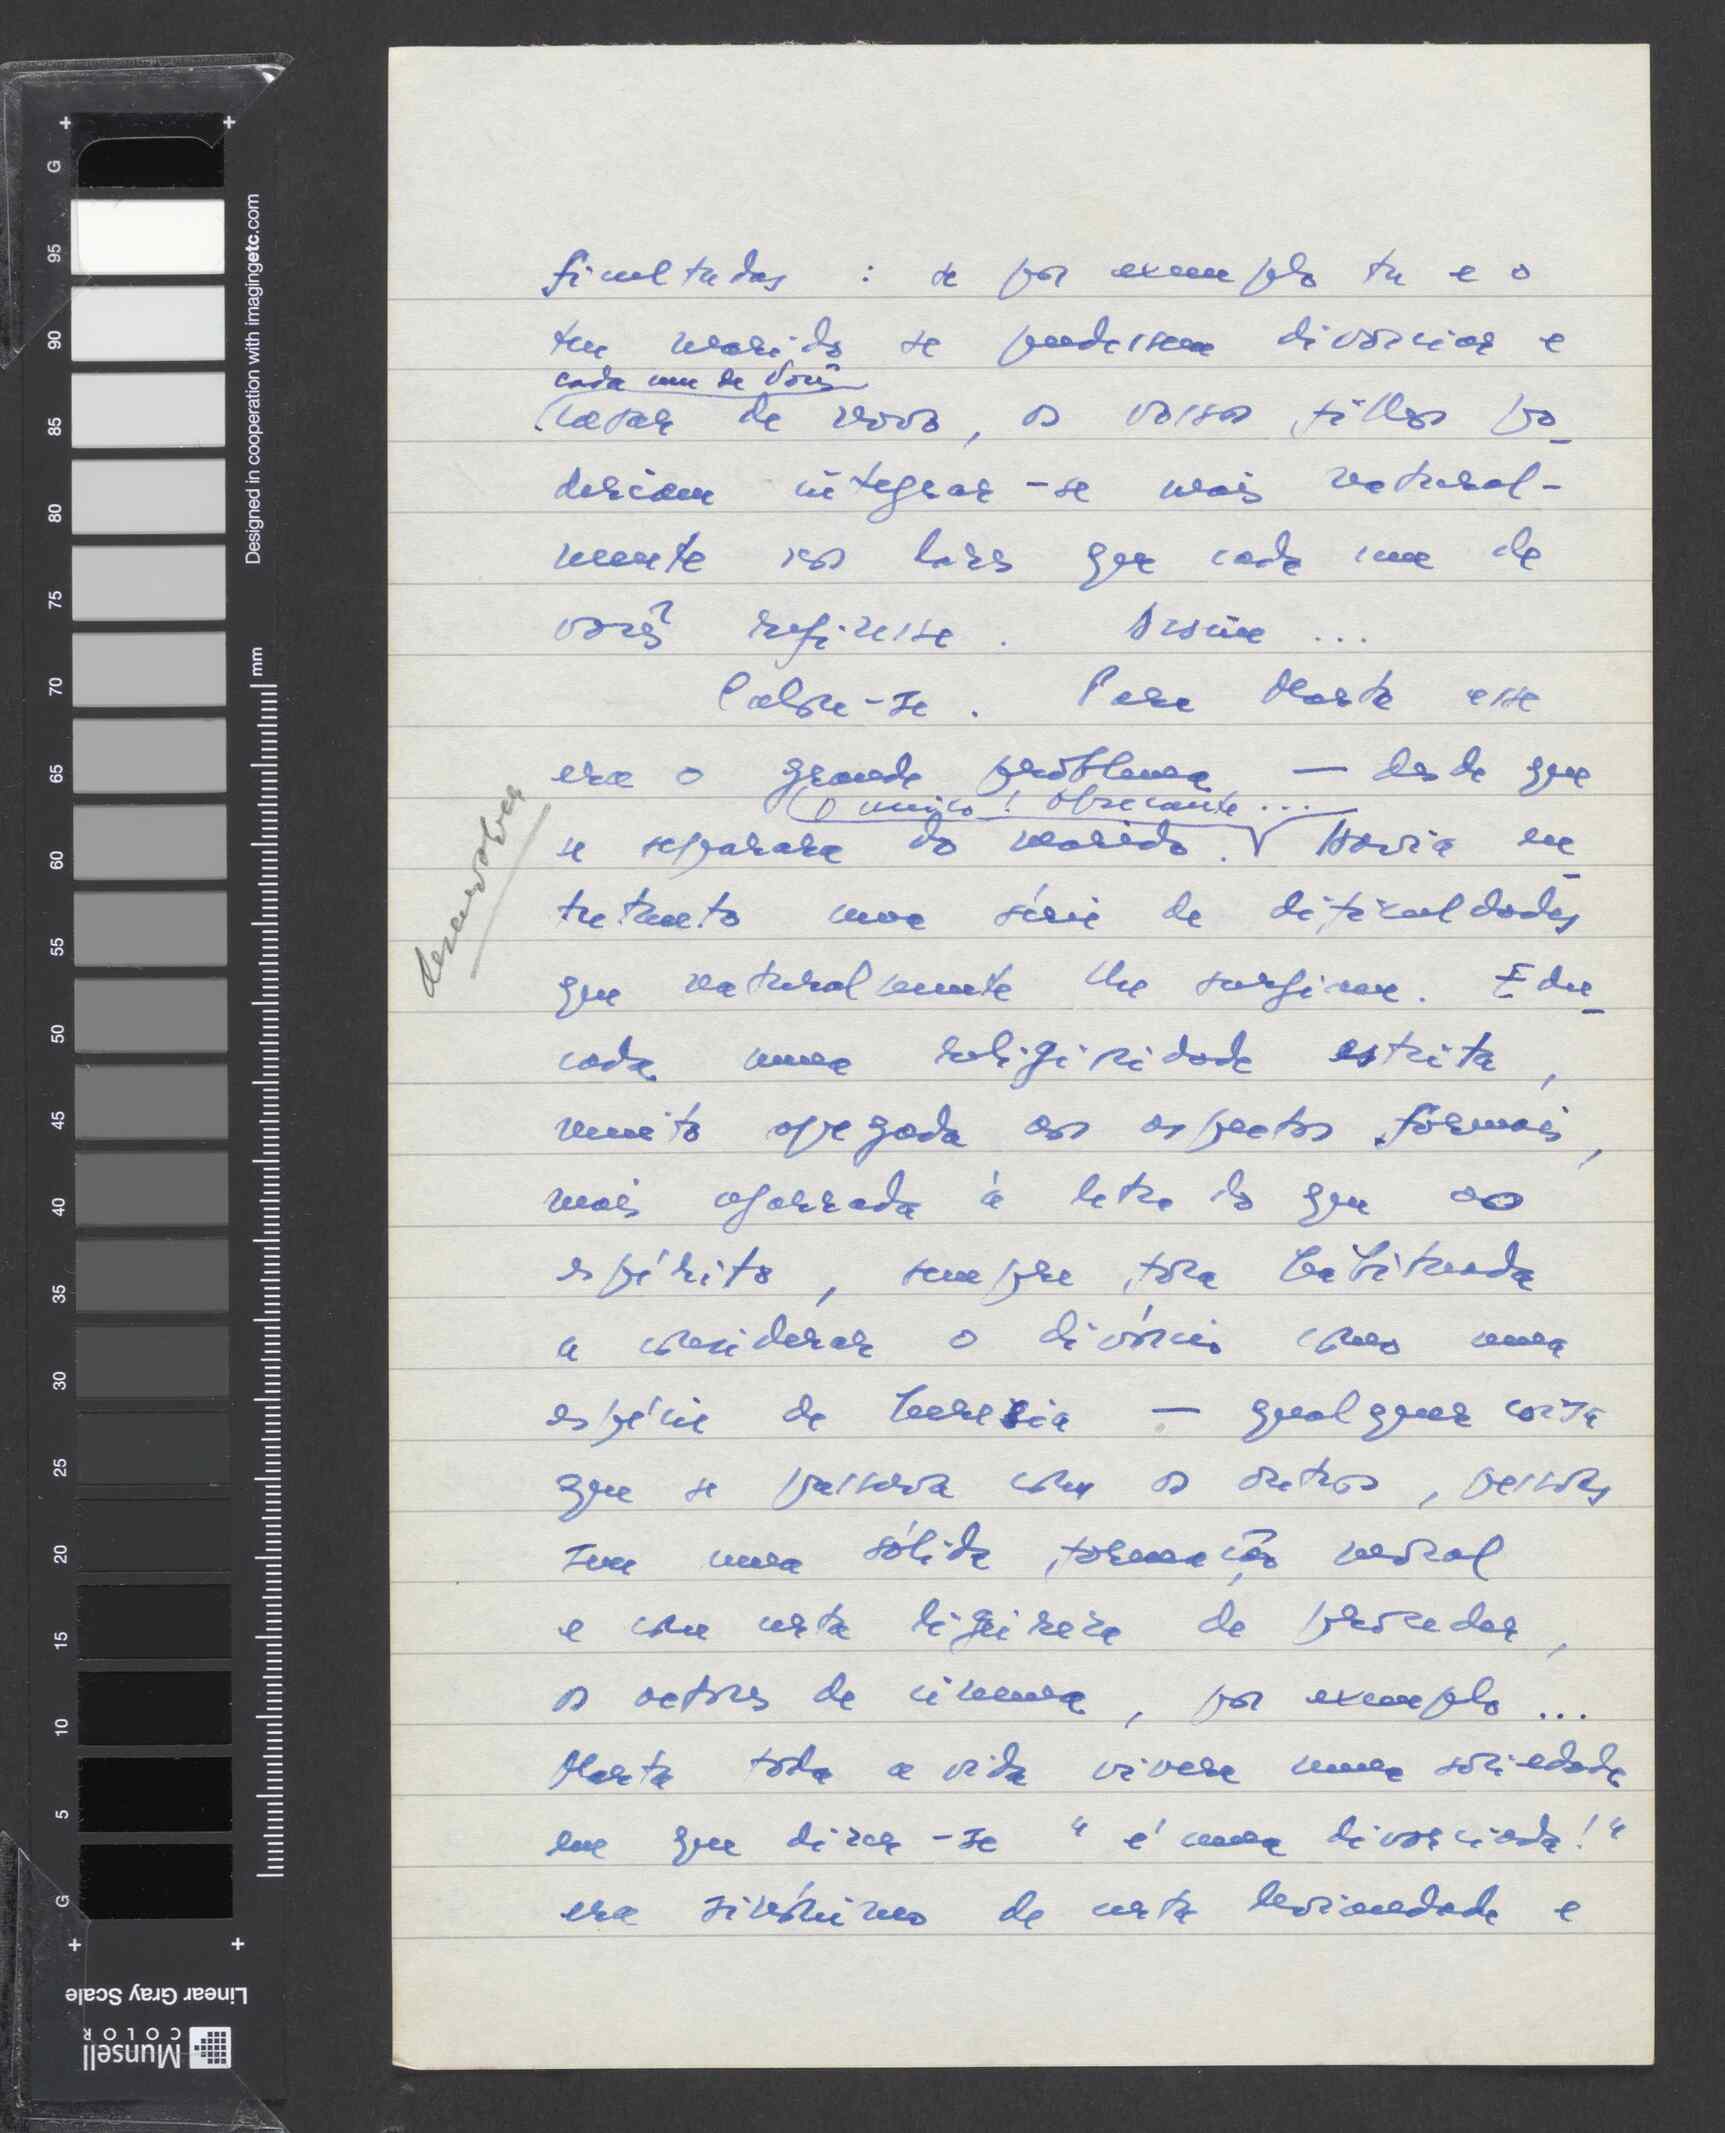 ficultadas : se por exemplo tu e o
teu marido se pudessem divorciar e
cada um de vocês
casar de novo, os vossos filhos po-
deriam integrar-se mais natural-
mente nos lares que cada um de
vocês refizesse. Assim ...
Calou-se. Para Marta esse
era o grande problema — desde que
O único! Obsecante ...
se separara do marido. Havia en-
tretanto uma série de dificuldades
que naturalmente lhe surgiram. Edu-
cada numa religiosidade estrita,
muito apegada aos aspectos formais,
mais agarrada à letra do que ao
espírito, sempre fora habituada
a considerar o divórcio como uma
espécie de heresia — qualquer coisa
que se passava com os outros, pessoas
sem uma sólida formação moral
e com certa ligeireza de proceder,
os actores de cinema, por exemplo ...
Marta toda a vida vivera numa sociedade
em que dizer-se "é uma divorciada!"
era sinónimo de certa leviandade e
desenvolver
Designed in cooperation with imagingetc.com
mm
G 95 90 85 80 75 70 65 60 55 50 45 40 35 30 25 20 15 10 5 G
Linear Gray Scale
Munsell
COLOR